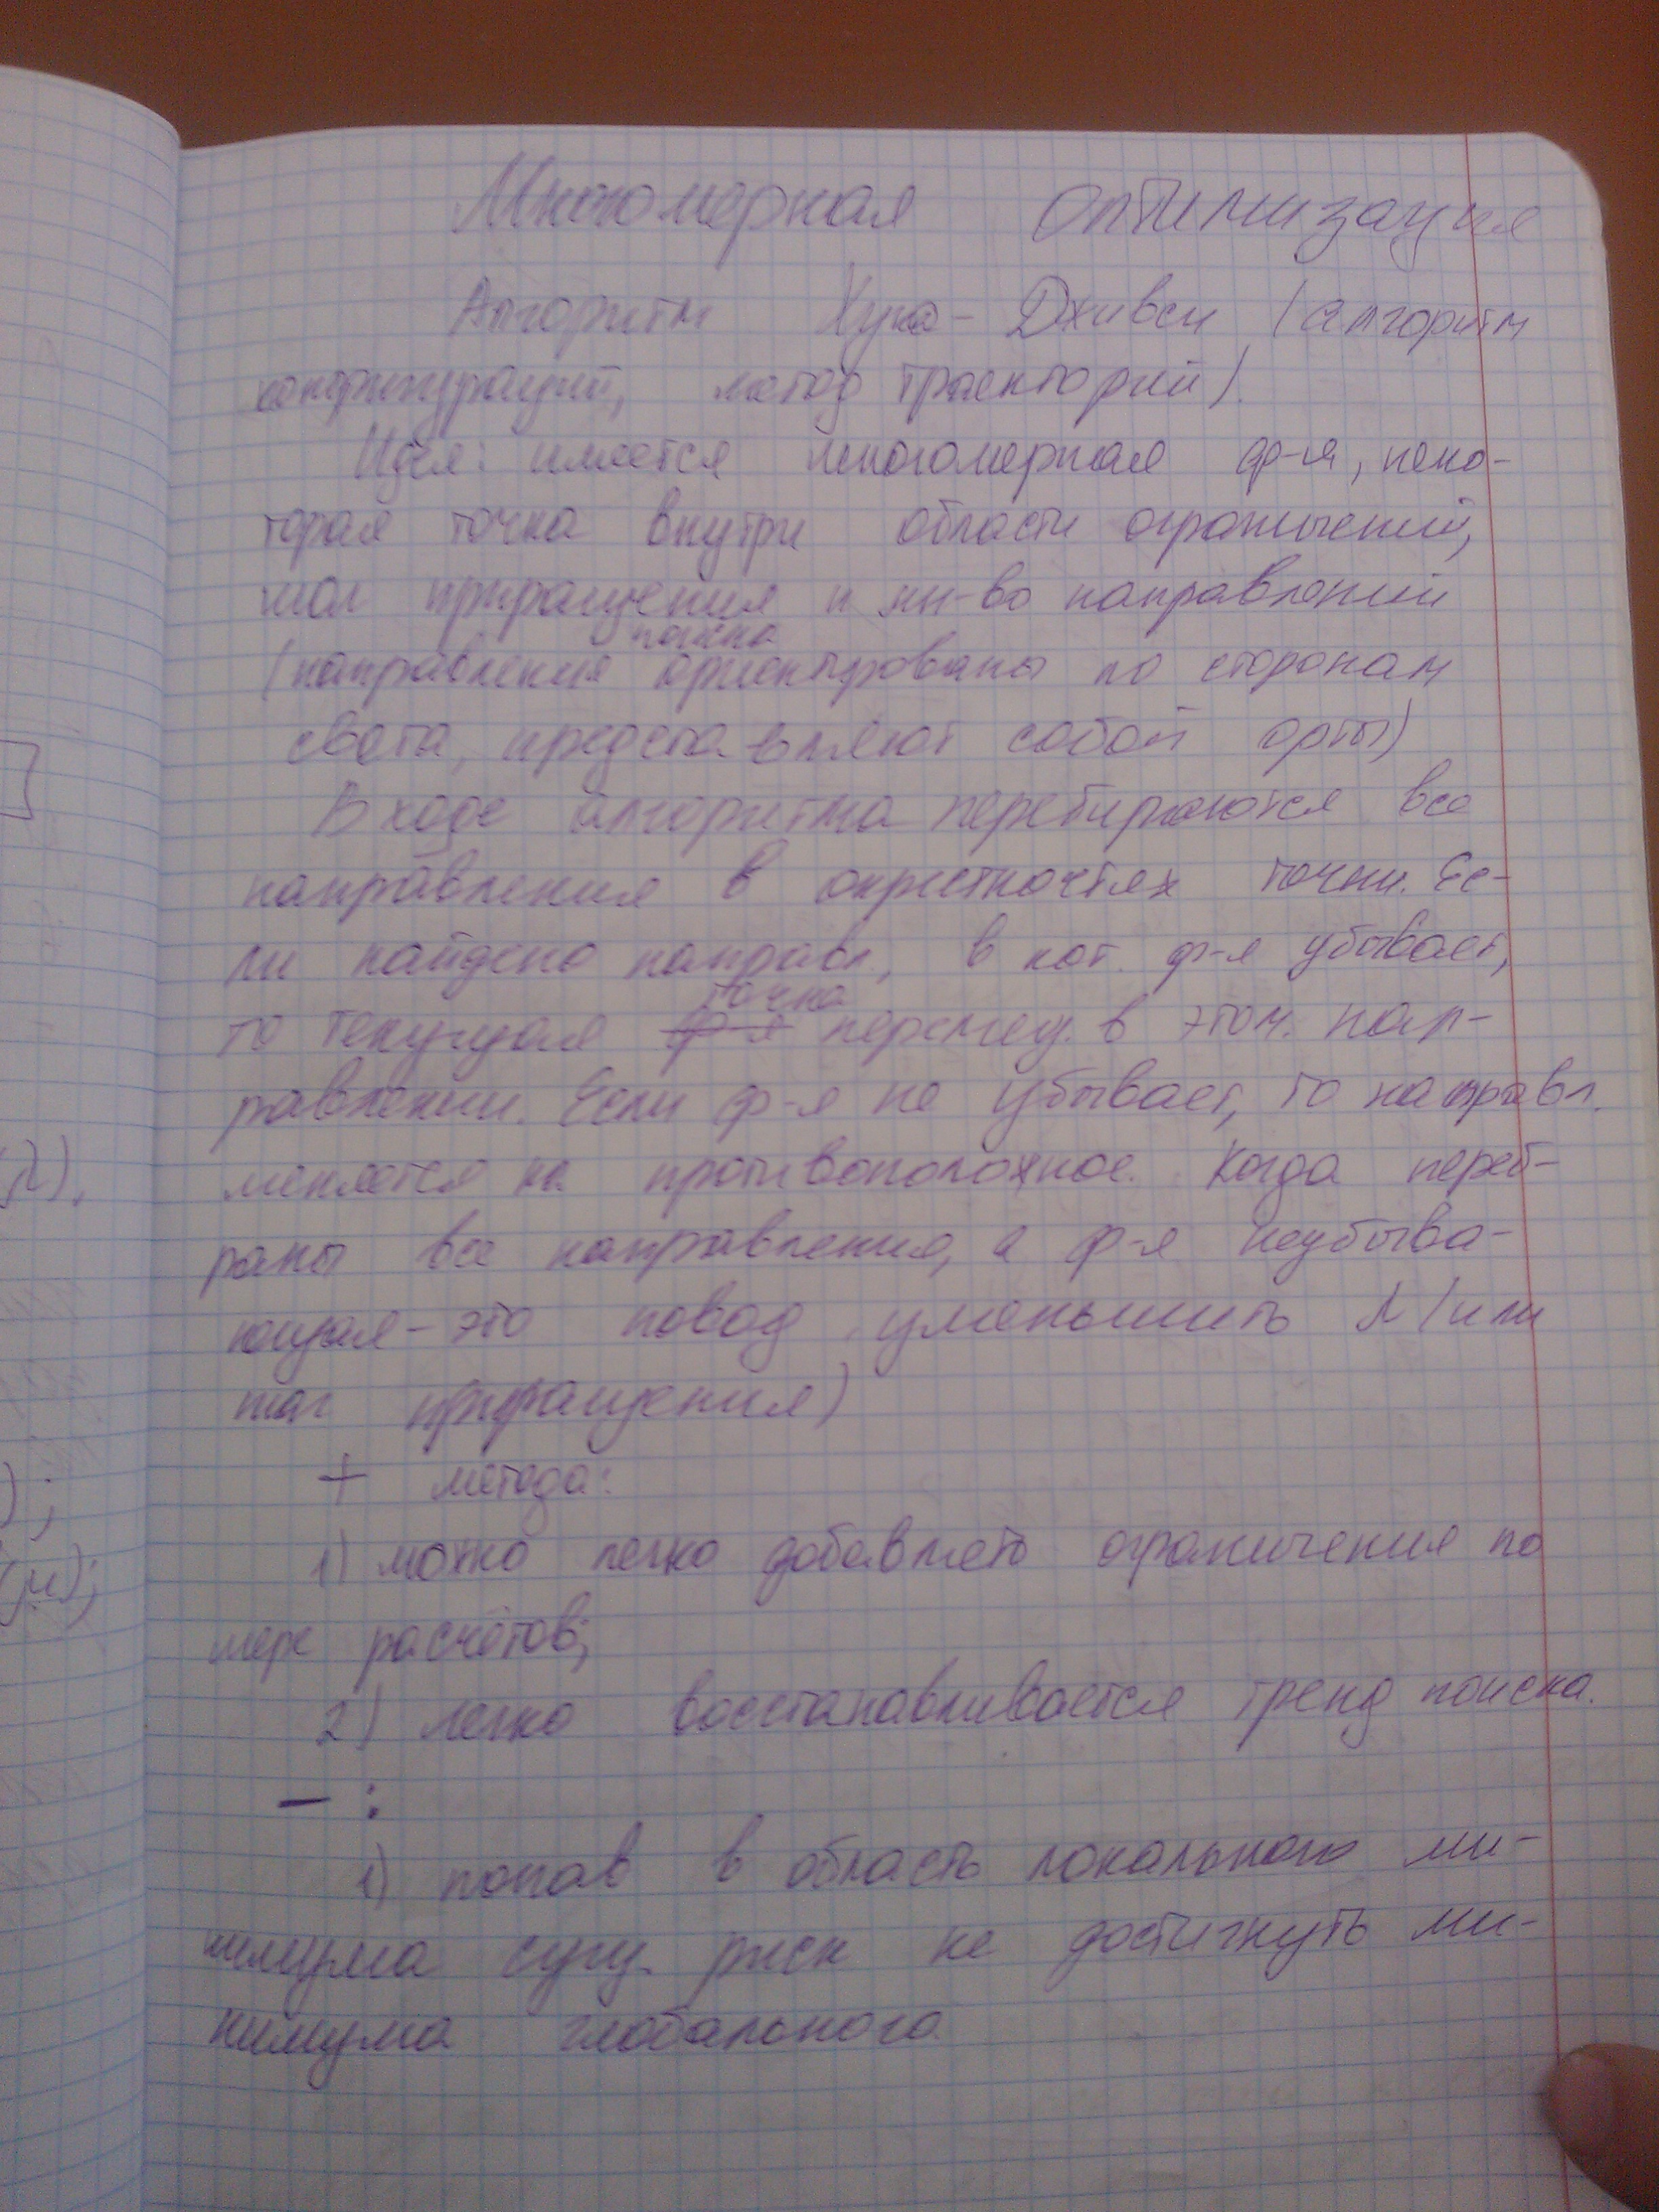 Многомерная оптимизация
Алгоритм Хука - Дживси (алгоритм
конфигураций, метод траекторий).
Идея: имеется многомерная ф-я, неко-
торая точка внутри области ограничений,
шаг приращения и мн-во направлений
(направления ориентированы по сторонам
света, представляют собой орты)
В ходе алгоритма перебираются все
направления в окрестностях точки. Ес-
ли найдено направл., в кот. ф-я убывает,
точка
то текущая ф-я перемещ. в этом. нап-
равлении. Если ф-я не убывает, то направл.
меняется на противоположное. Когда переб-
раны все направления, а ф-я неубыва-
ющая - это повод уменьшить λ (или
шаг приращения)
+ метода:
1) можно легко добавлять ограничения по
мере расчётов;
2) легко восстанавливается тренд поиска.
- :
1) попав в область локального ми-
нимума сущ. риск не достигнуть ми-
нимума глобального